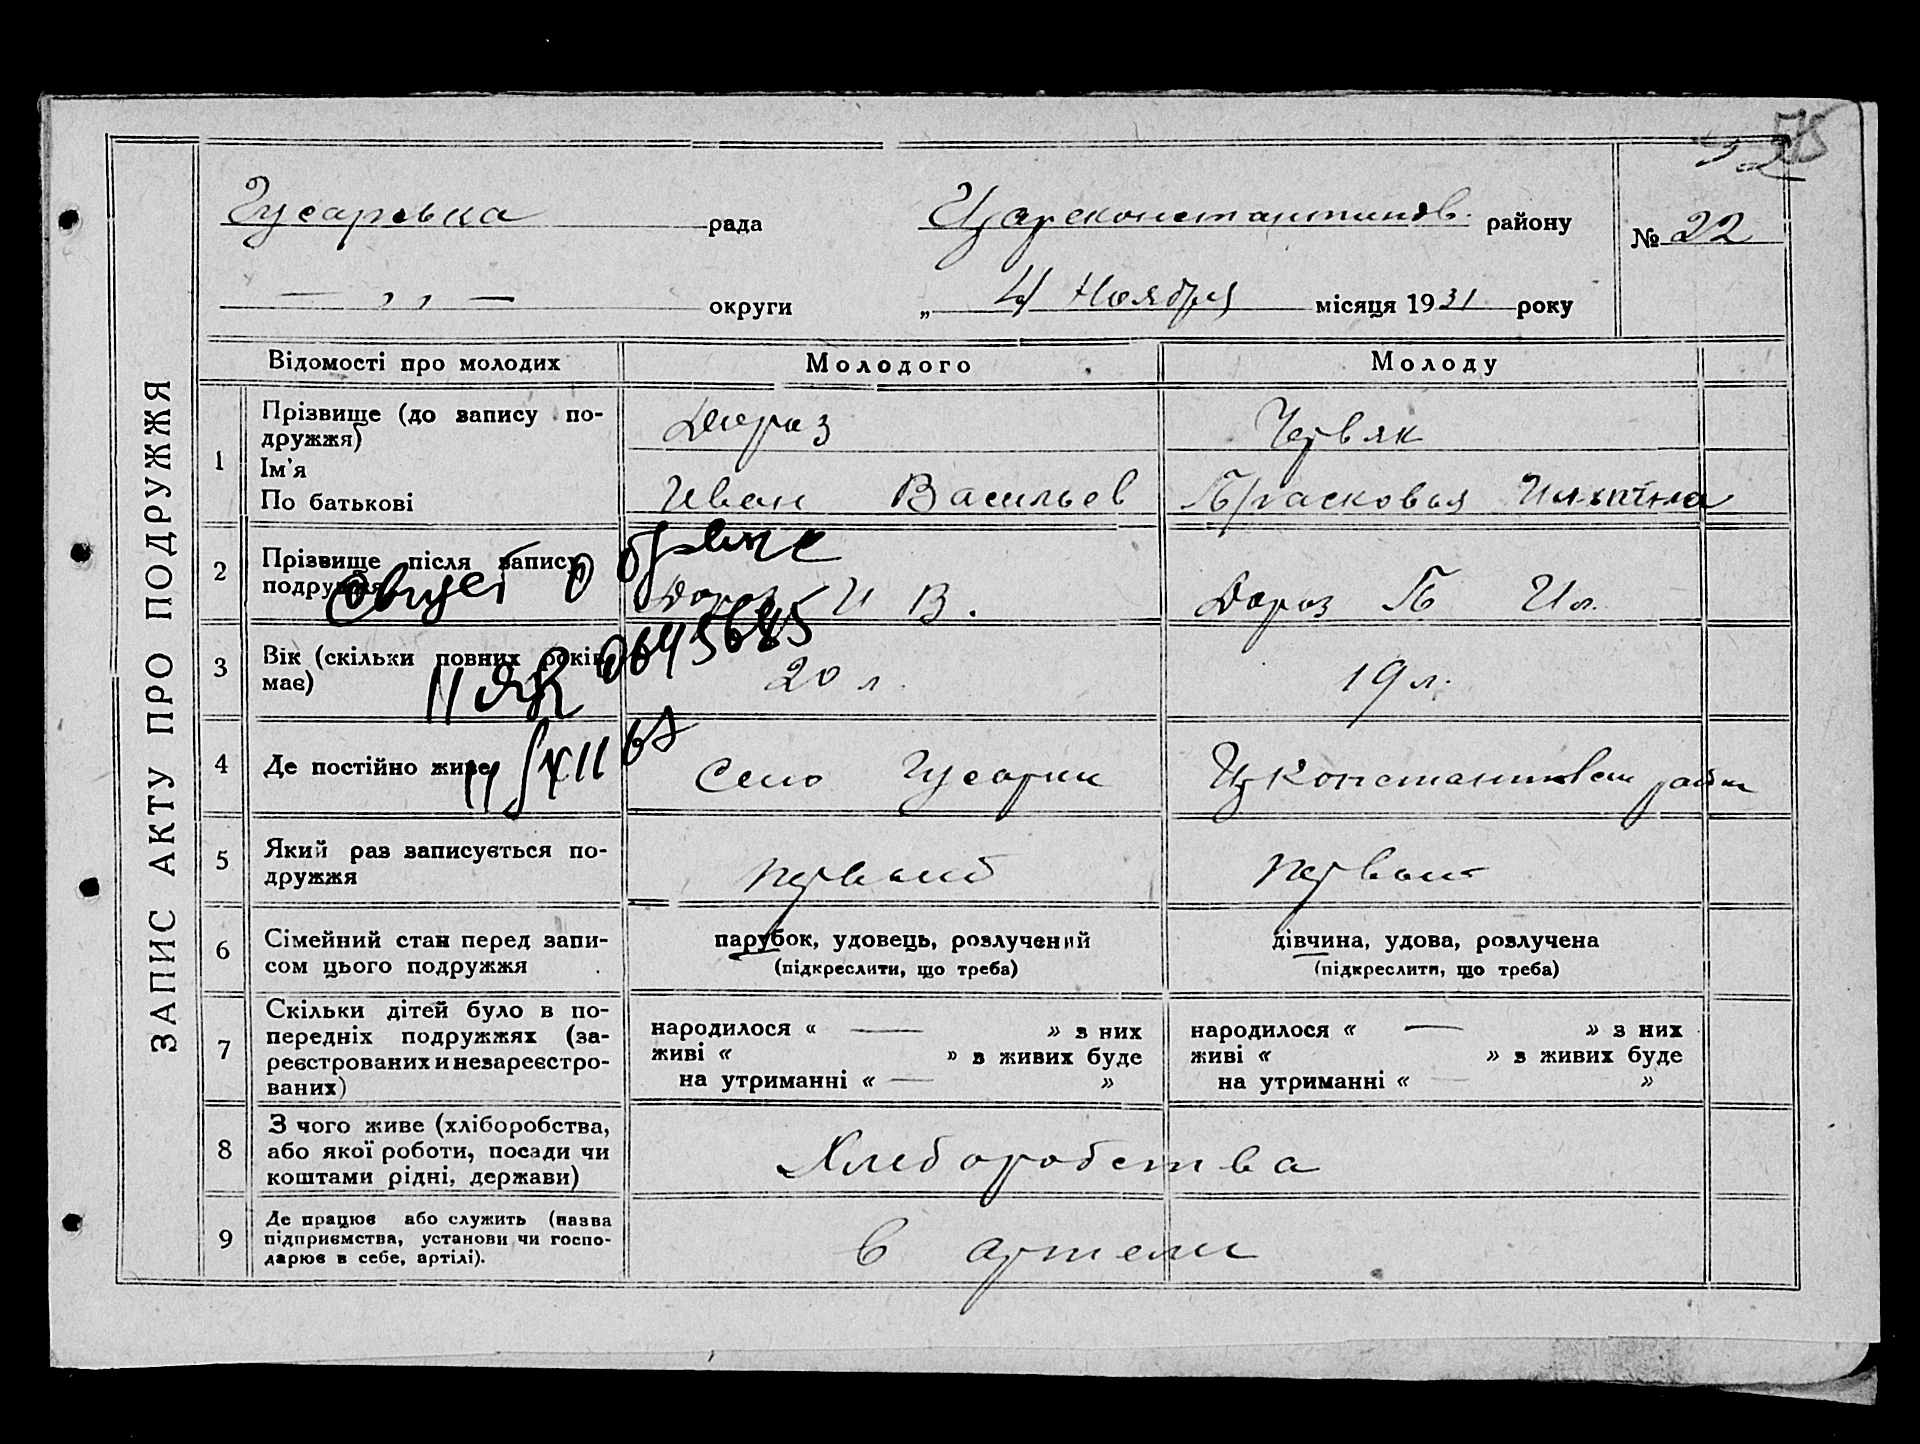 ЗАПИС АКТУ ПРО ПОДРУЖЖЯ
Гусарівка рада
Цареконстантинов. району
№ 22
— „ — округи
„ 4 Ноября місяця 1931 року
Відомості про молодих
Молодого
Молоду
1
Прізвище (до запису по-
дружжя)
Ім'я
По батькові
Дораз
Иван Васильев
Червяк
Прасковья
2
Прізвище після запису
подружжя
Дораз И В.
Дораз П Ил.
3
Вік (скільки повних років
має)
20 л.
19 л.
4
Де постійно живе
Село Гусарки
5
Який раз записується по-
дружжя
первый
первый
6
Сімейний стан перед запи-
сом цього подружжя
парубок, удовець, розлучений
(підкреслити, що треба)
дівчина, удова, розлучена
(підкреслити, що треба)
7
Скільки дітей було в по-
передніх подружжях (за-
реєстрованих и незареєстро-
ваних)
народилося « — » з них
живі « » в живих буде
на утриманні « — »
народилося « — » з них
живі « » в живих буде
на утриманні « — »
8
З чого живе (хліборобства,
або якої роботи, посади чи
коштами рідні, держави)
Хлеборобства
9
Де працює або служить (назва
підприємства, установи чи госпо-
дарює в себе, артілі).
в артели